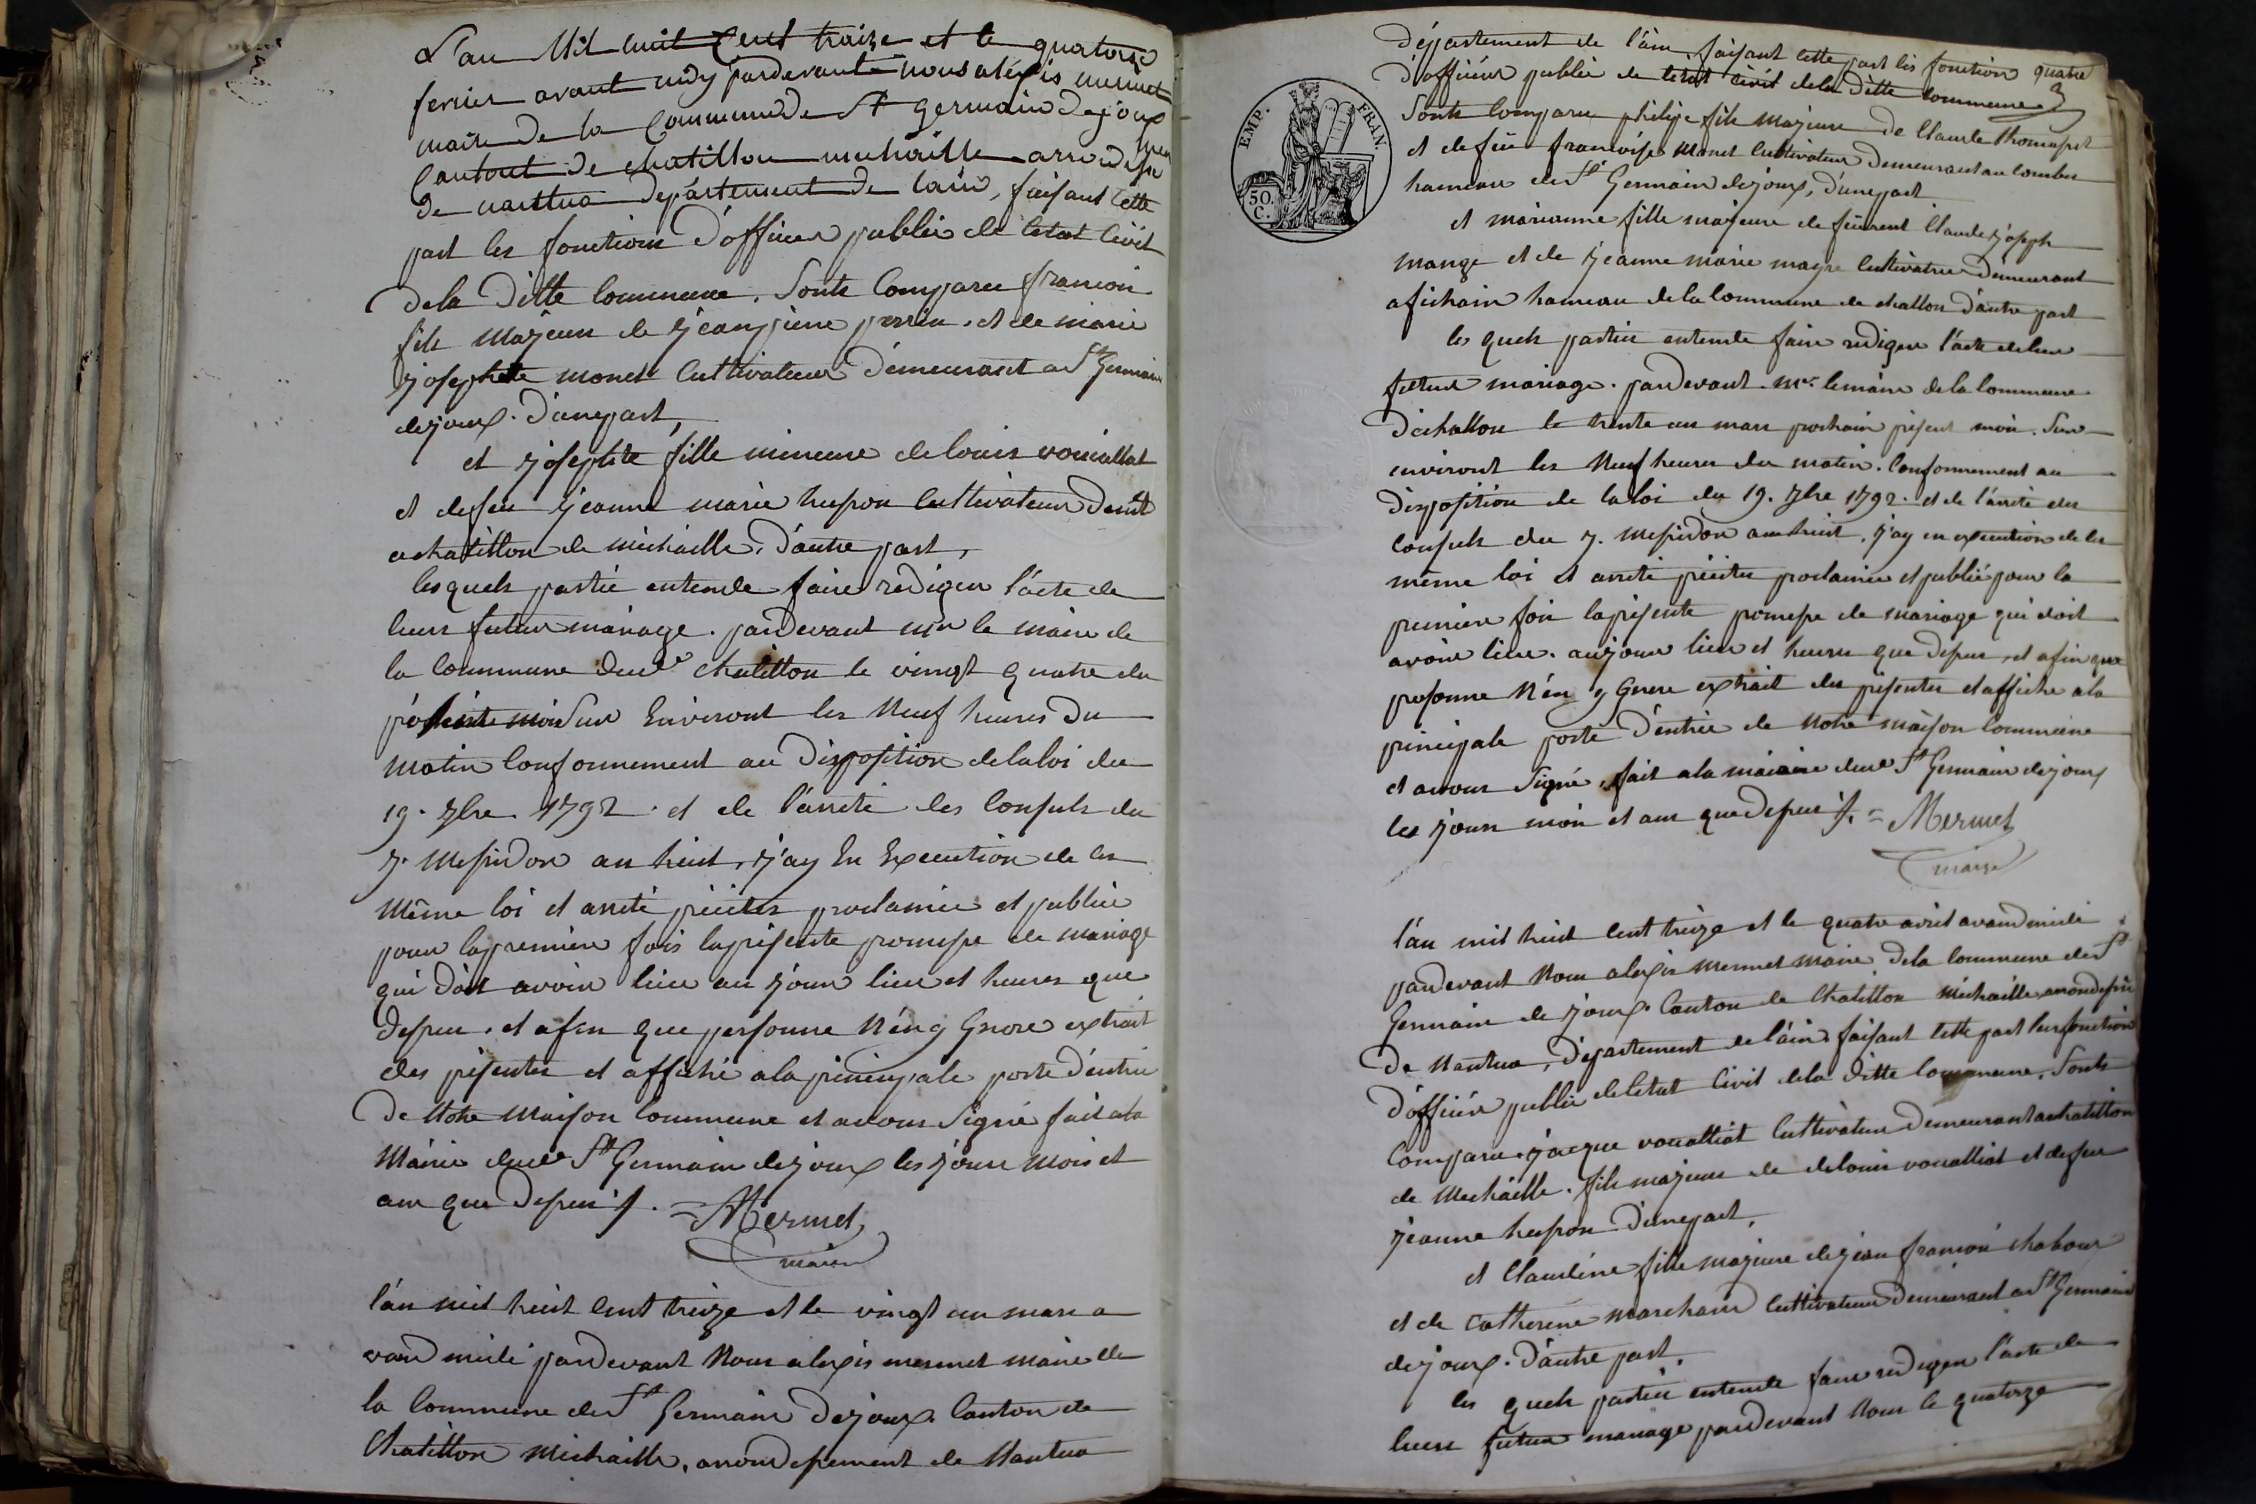 L'an Mil huit Cent traize et le quatorze
fevrier avant midy pardevant nous aléxis mermet
maire de la Commune de St germain de joux
Cantont de chatillon michaille arrondissemen
de nantua département de lain, faisant cette
part les fonctions d'officier publie de letat Civil
de la Ditte Commune. Sonts Comparu francois
fils majeur de Jean pierre perrin. et de marie
josephte monet Cultivateur démeurant a St Germain
dejoux. D'unepart,
et josephte fille mineure de louis vouialliat
et defeu jeanne marie huporn Cultivateur demt
a chatillon de michaille, d'autre part,
les quels partie entende faire rediger l'acte de
leurs futur mariage. pardevant mr le maire de
la Commune dud. chatillon le vingt quatre du
présente mois Sur Environt les Neuf heures Du
matin Conformement au Disposition de la loi du
19. 7bre 1792. et de l'arreté des Consuls du
7. Messidor an huit, j'ay En Execution de les
Même loi et arreté précites proclamée et publiée
pour la premiere fois la présente promesse de mariage
qui doit avoir lieu au jour lieu et heures que
dessus. et afin que personne N'en y Gnore extrait
des présentes et affiché a la principale porte d'éntrée
De Notre Maison Commune et avons Signé fait a la
Mairie dud. St Germain dejoux les jours Mois et
an que dessus. = Mermet
maire
l'an mil huit Cent treize et le vingt un mars a
vand midi pardevant Nous alexis mermet maire de
la Commune de St Germain Dejoux. Canton de
Chatillon Michaille, arrondissement de Nantua
EMP. FRAN.
50. C.
département de l'ain, faisant cette part les fonction quatre
d'officiér publie de letat civil dela Ditte Commune 3
Sonts Comparu philipe fils Majeur De Claude thomasset
et de feu francoise Monet Cultivateur Demeurant au Combes
hameau de St Germain dejoux, d'unepart
et marianne fille majeure de feu rent Claude joseph
mange et de jeanne marie magre Cultivatrice demeurant
a fichain hameau de la Commune de challon d'autre part
les quels partie entende faire rediger l'acte de leur
futur mariage. pardevant Mr. le maire de la Commune
d'échallon le trente un mars prochain présent mois. Sur
environt les Neuf heures du matin. Conformement au
disposition de la loi du 19. 7bre 1792. et de l'arreté des
Consuls du 7. Messidor an huit, j'ay en execution de les
même loi et arreté précites proclamée et publié pour la
premiere fois la présente promesse de mariage qui doit
avoir lieu. au jour lieu et heures que dessus, et afin que
personne N'en y Gnore extrait des présentes et affiche a la
principale porte D'éntrée de Notre maison Commune
et avons Signé, fait a la mairie dud. St Germain dejoux
les jours mois et an que dessus. = Mermet
maire
l'an mil huit Cent treize et le quatre avril avand midi
pardevant Nous alexis mermet maire dela Commune de St
Germain de joux. Canton de Chatillon Michaille, arrondissem
De Nantua, département de l'ain, faisant cette part les fonction
d'officiér publie de letat Civil dela ditte Commune. Sonts
Comparu. jacque vouailliat Cultivateur Demeurant a chatillon
de Michaille. fils majeur de de louis vouailliat et de feu
jeanne huporn d'unepart.
et Claudine fille majeure de jean francois chaboux
et de Catherine marchand Cultivateur demeurant a St Germain
dejoux. D'autre part.
les quels partie entende faire rediger l'acte de
leurs futur mariage pardevant Nous le quatorze